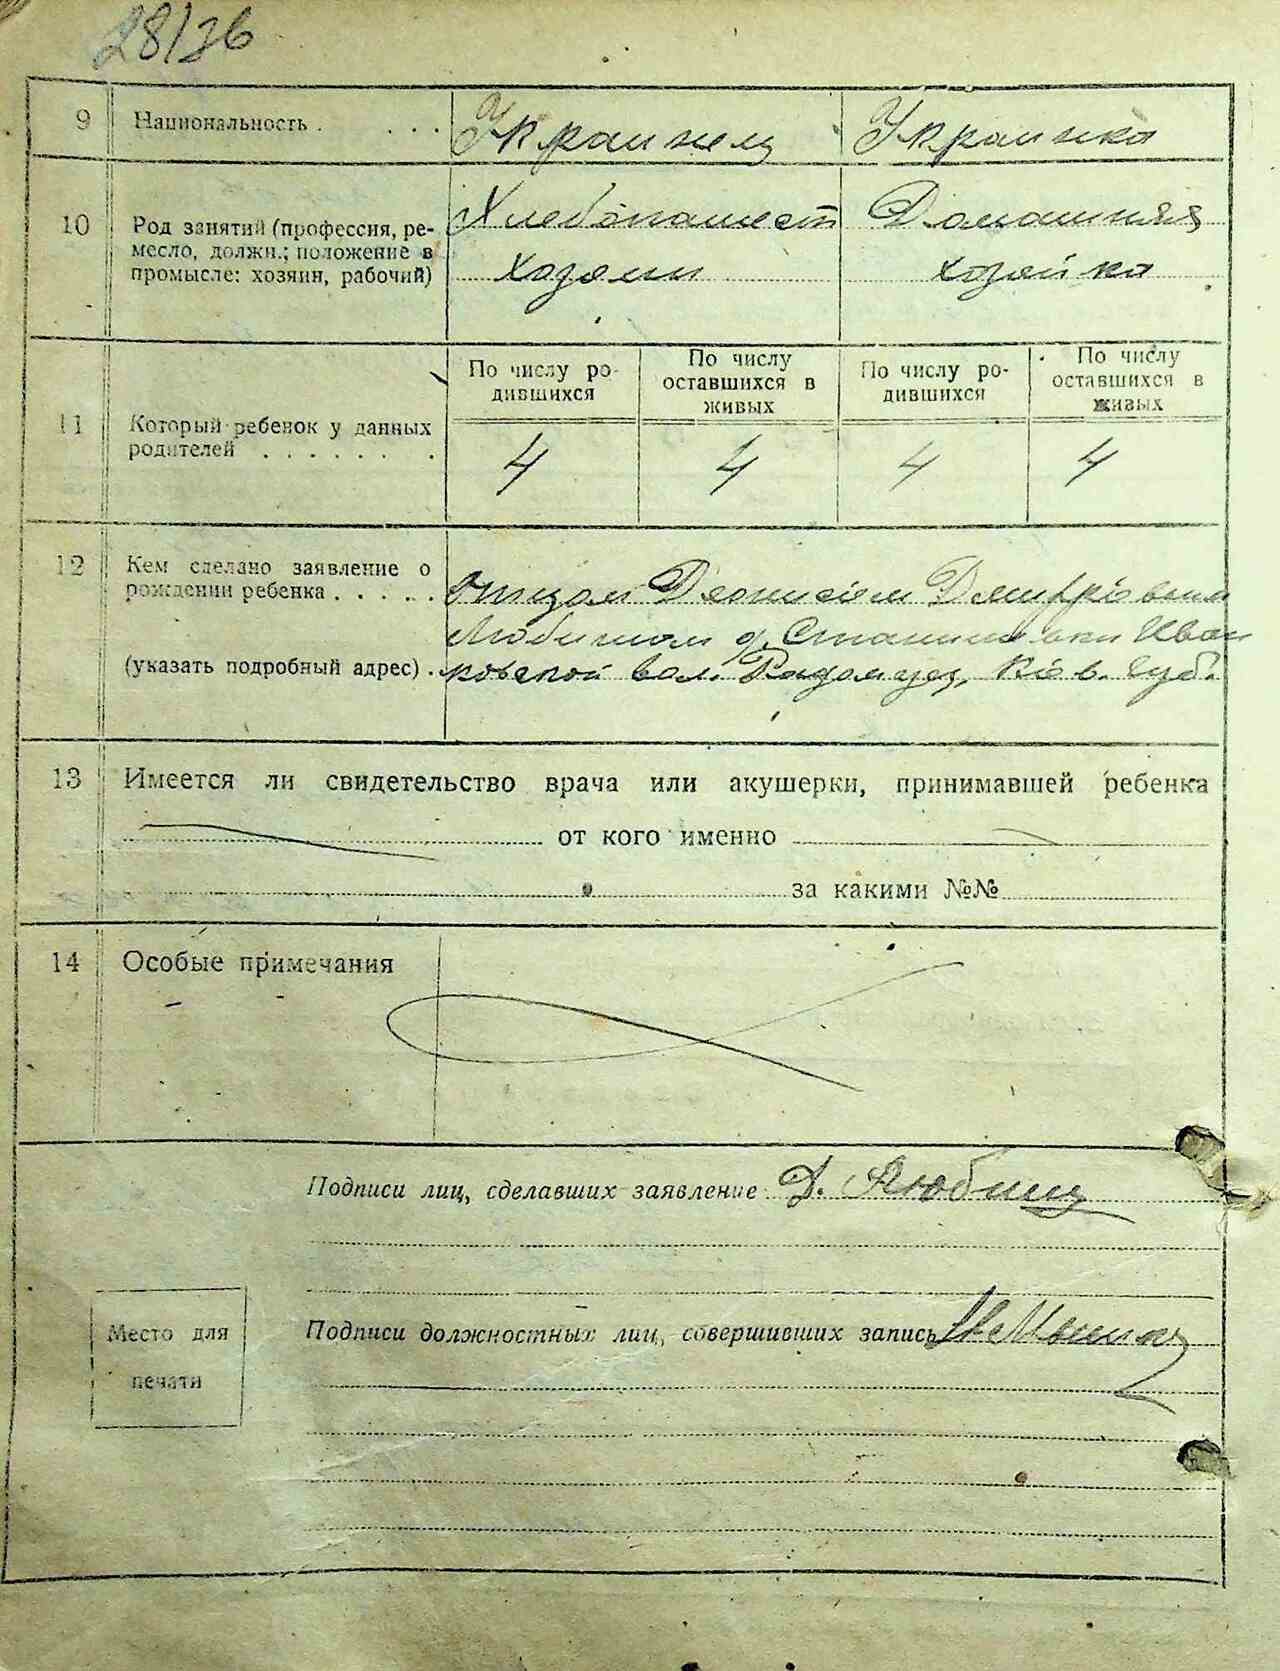 28/36
9 Национальность . . . . Украинец Украинка
10 Род занятий (профессия, ре-
месло, должн.; положение в
промысле: хозяин, рабочий)
Хлебопашест Домашняя
хозяин хозяйка
11 Который ребенок у данных
родителей . . . . . . .
По числу ро-
дившихся
По числу
оставшихся в
живых
По числу ро-
дившихся
По числу
оставшихся в
живых
4 4 4 4
12 Кем сделано заявление о
рождении ребенка . . . . .
(указать подробный адрес) .
отцом Деонисом Дмитровичем
Любичом д. Станишовки Иван
ковской вол. Радомуез. Киев. Губ.
13 Имеется ли свидетельство врача или акушерки, принимавшей ребенка
от кого именно
за какими №№
14 Особые примечания
Подписи лиц, сделавших заявление Д. Любич
Место для
печати
Подписи должностных лиц, совершивших запись